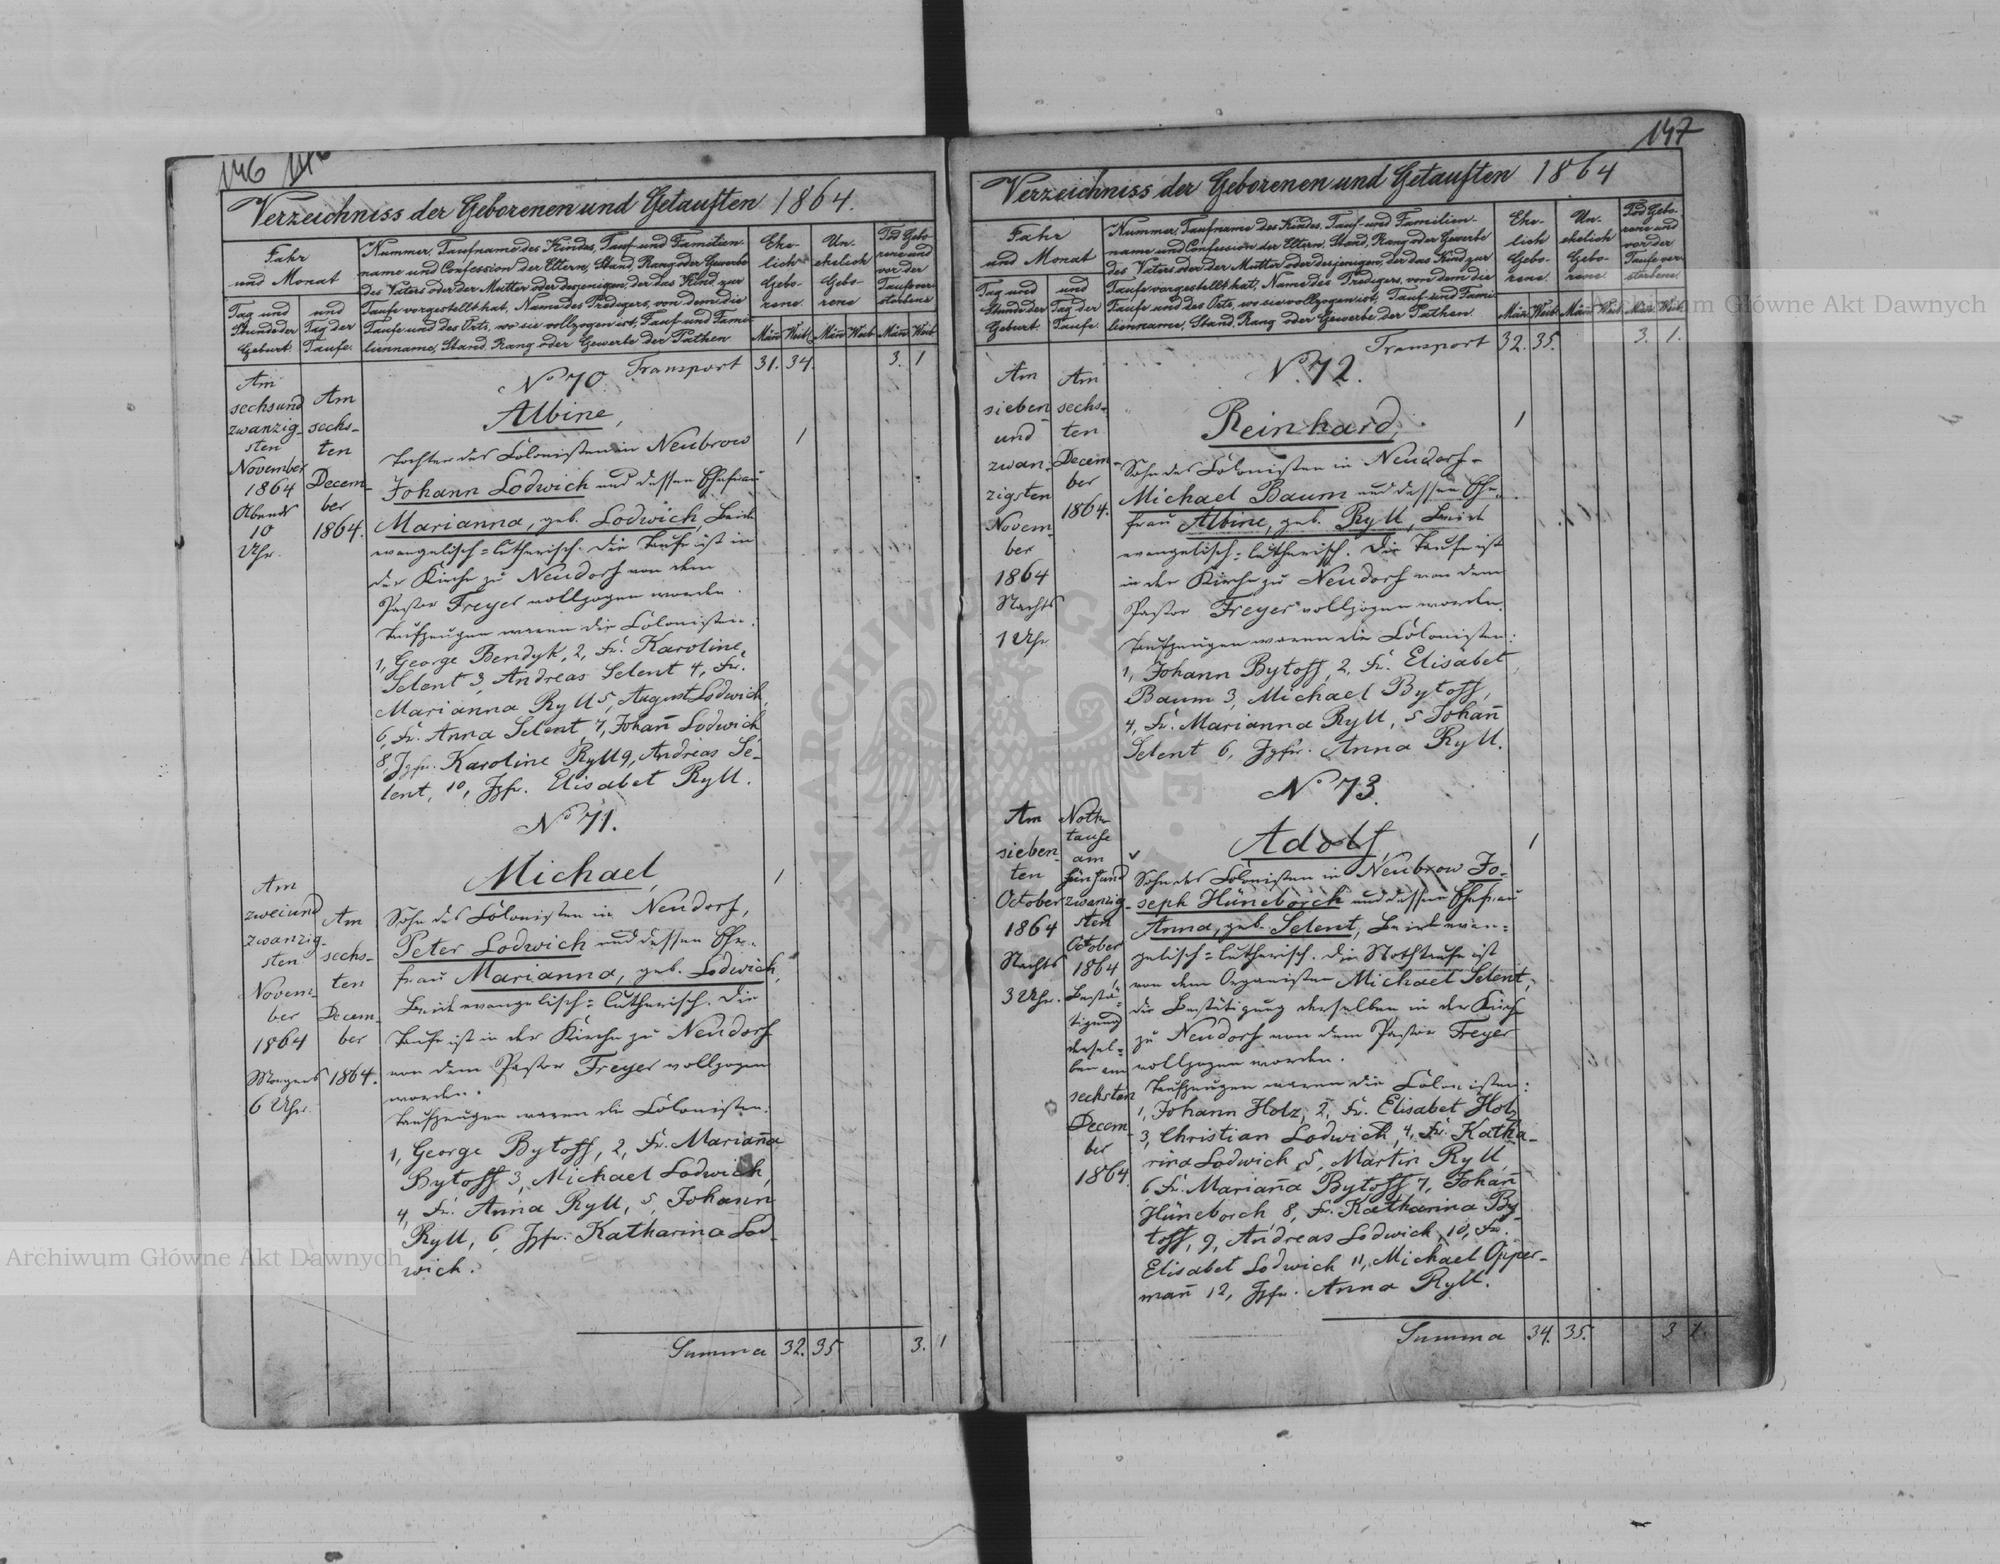 146
Verzeichniss der Geborenen und Getauften 1864.
Jahr
und Monat
Tag und
Stunde der
Geburt.
und
Tag der
Taufe.
Nummer, Taufname des Kindes, Tauf- und Familien-
name und Confession der Eltern, Stand, Rang oder Gewerbe
des Vaters oder der Mutter oder desjenigen, der das Kind zur
Taufe vorgestellt hat, Name des Predigers, von dem die
Taufe und des Orts, wo sie vollzogen ist, Tauf- und Fami-
lienname, Stand, Rang oder Gewerbe der Pathen
Ehe-
lich
Gebo-
rene.
Un-
ehelich
Gebo-
rene
Tod Gebo-
rene und
vor der
Taufe ver-
storbene
Män̄ Weib. Män̄ Weib Män̄ Weib
Transport 31. 34. 3. 1
Am
sechsund
zwanzig-
sten
November
1864
Abends
10
Uhr.
Am
sechs-
ten
Decem-
ber
1864.
No 70.
Albine, 1
Tochter des Colonisten in Neubrow
Johann Lodwich und dessen Ehefrau
Marianna, geb. Lodwich, Beide
evangelisch=lutherisch. Die Taufe ist in
der Kirche zu Neudorf von dem
Pastor Freyer vollzogen worden.
Taufzeugen waren die Colonisten:
1, George Bendyk, 2, Fr. Karoline
Selent 3, Andreas Selent 4, Fr.
Marianna Ryll 5, August Lodwich,
6, Fr. Anna Selent, 7, Johan̄ Lodwich
8, Jgfr. Karoline Ryll 9, Andreas Se-
lent, 10, Jgfr. Elisabet Ryll.
No 71.
Am
zweiund
zwanzig-
sten
Novem-
ber
1864
Morgens
6 Uhr.
Am
sechs-
ten
Decem-
ber
1864.
Michael, 1
Sohn des Colonisten in Neudorf,
Peter Lodwich und dessen Ehe-
frau Marianna, geb. Lodwich,
Beide evangelisch=lutherisch. Die
Taufe ist in der Kirche zu Neudorf
von dem Pastor Freyer vollzogen
worden.
Taufzeugen waren die Colonisten:
1, George Bytoff, 2, Fr. Marian̄a
Bytoff 3, Michael Lodwich,
4, Fr. Anna Ryll, 5, Johann
Ryll, 6, Jgfr. Katharina Lod-
wich.
Summa 32. 35 3. 1
147
Verzeichniss der Geborenen und Getauften 1864
Jahr
und Monat
Tag und
Stunde der
Geburt.
und
Tag der
Taufe.
Nummer, Taufname des Kindes, Tauf- und Familien-
name und Confession der Eltern, Stand, Rang oder Gewerbe
des Vaters oder der Mutter oder desjenigen, der das Kind zur
Taufe vorgestellt hat, Name des Predigers, von dem die
Taufe und des Orts, wo sie vollzogen ist, Tauf- und Fami-
lienname, Stand, Rang oder Gewerbe der Pathen
Ehe-
lich
Gebo-
rene.
Un-
ehelich
Gebo-
rene.
Tod Gebo-
rene und
vor der
Taufe ver-
storbene
Män̄ Weib. Män̄ Weib. Män̄ Weib.
Transport 32. 35. 3. 1.
Am
sieben
und
zwan-
zigsten
Novem-
ber
1864
Nachts
1 Uhr
Am
sechs-
ten
Decem-
ber
1864.
No. 72.
Reinhard, 1
Sohn des Colonisten in Neudorf-
Michael Baum und dessen Ehe-
frau Albine, geb. Ryll, Beide
evangelisch=lutherisch. Die Taufe ist
in der Kirche zu Neudorf von dem
Pastor Freyer vollzogen worden.
Taufzeugen waren die Colonisten:
1, Johann Bytoff, 2, Fr. Elisabet,
Baum 3, Michael Bytoff,
4, Fr. Marianna Ryll, 5 Johan̄
Selent 6, Jgfr. Anna Ryll.
No 73.
Am
sieben-
ten
October
1864
Nachts
3 Uhr.
Noth-
taufe
am
fünfund
zwanzig-
sten
October
1864
Bestä-
tigung
dersel-
ben am
sechsten
Decem-
ber
1864.
Adolf, 1
Sohn des Colonisten in Neubrow Jo-
seph Hüneborch und dessen Ehefrau
Anna, geb. Selent, Beide evan=
gelisch=lutherisch. Die Nothtaufe ist
von dem Organisten Michael Selent,
die Bestätigung derselben in der Kirche
zu Neudorf von dem Pastor Freyer
vollzogen worden.
Taufzeugen waren die Colonisten:
1, Johann Holz, 2, Fr. Elisabet Holz
3, Christian Lodwich, 4, Fr. Katha-
rina Lodwich, 5, Martin Ryll
6 Fr. Marian̄a Bytoff 7, Johan̄
Hüneborch 8, Fr. Katharina By-
toff, 9, Andreas Lodwich, 10, Fr.
Elisabet Lodwich 11, Michael Opper-
man̄ 12, Jgfr. Anna Ryll.
Summa 34. 35. 3 1.
Archiwum Główne Akt Dawnych
Archiwum Główne Akt Dawnych